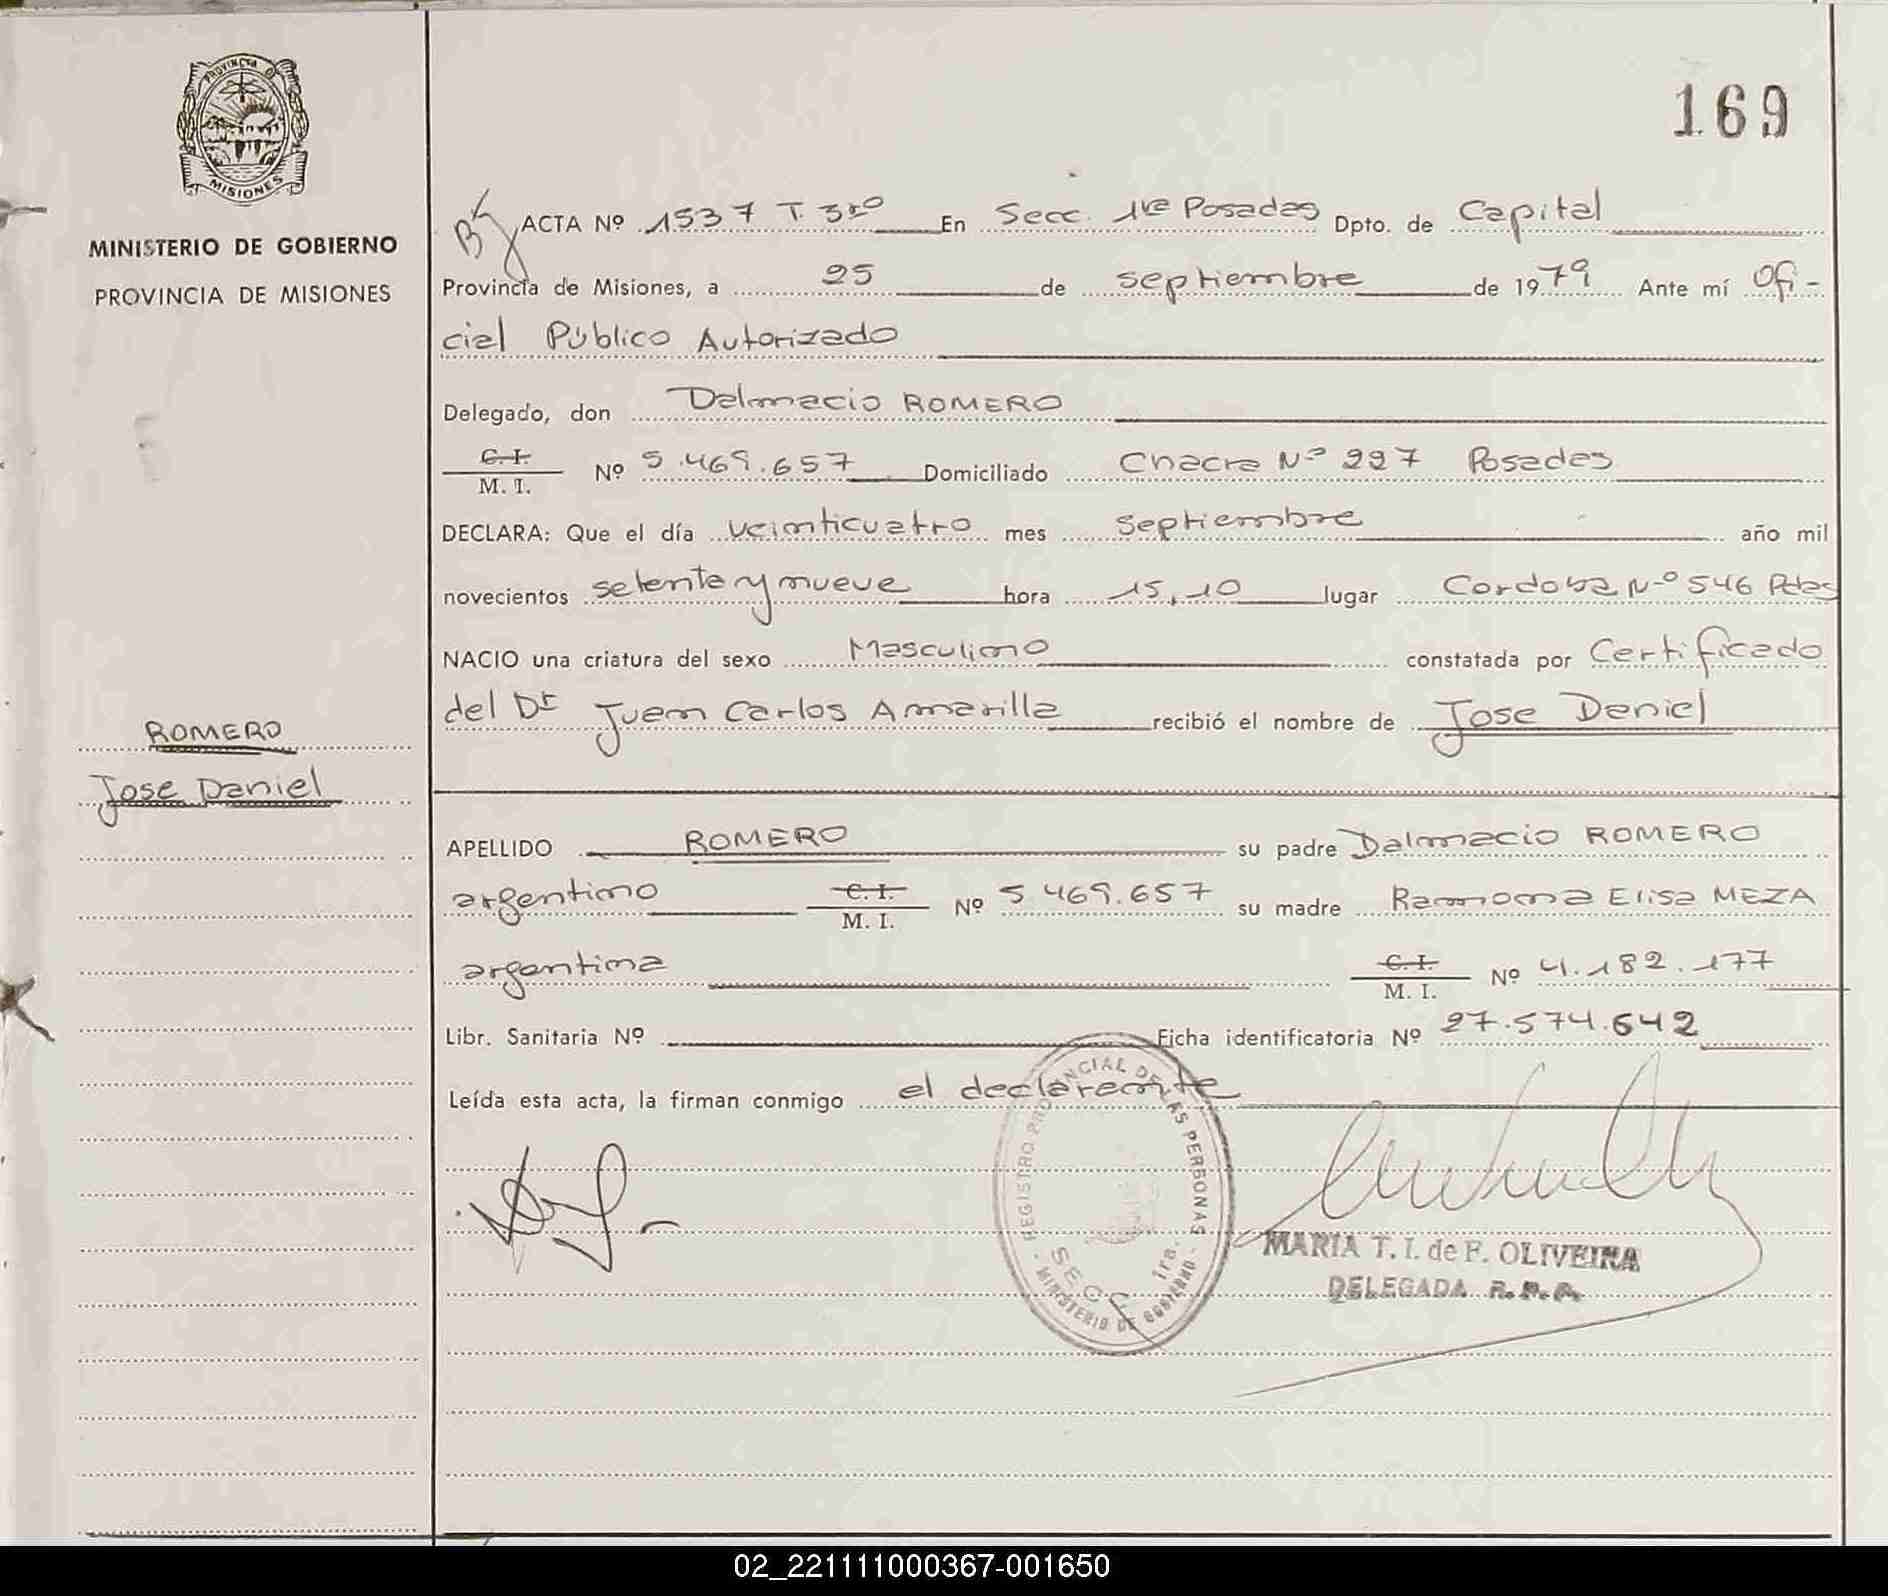 PROVINCIA DE
MISIONES
MINISTERIO DE GOBIERNO
PROVINCIA DE MISIONES
ROMERO
Jose Daniel
169
ACTA Nº 1537 T. 3ro En Secc. 1ra Posadas Dpto. de Capital
Provincia de Misiones, a 25 de septiembre de 1979 Ante mí Ofi-
cial Público Autorizado
Delegado, don Dalmacio ROMERO
C. I.
M. I. Nº 5.469.657 Domiciliado Chacra Nº 227 Posadas
DECLARA: Que el día veinticuatro mes septiembre año mil
novecientos setenta y nueve hora 15,10 lugar Cordoba Nº 546 Pdas
NACIO una criatura del sexo Masculino constatada por Certificado
del Dr Juan Carlos Amarilla recibió el nombre de Jose Daniel
APELLIDO ROMERO su padre Dalmacio ROMERO
argentino C. I. M. I. Nº 5.469.657 su madre Ramona Elisa MEZA
argentina C. I. M. I. Nº 4.182.177
Libr. Sanitaria Nº Ficha identificatoria Nº 27.574.642
Leída esta acta, la firman conmigo el declarante
REGISTRO PROVINCIAL DE LAS PERSONAS
SECC. 1ra.
- MINISTERIO DE GOBIERNO -
MARIA T. I. de F. OLIVEIRA
DELEGADA R. P. P.
02_221111000367-001650